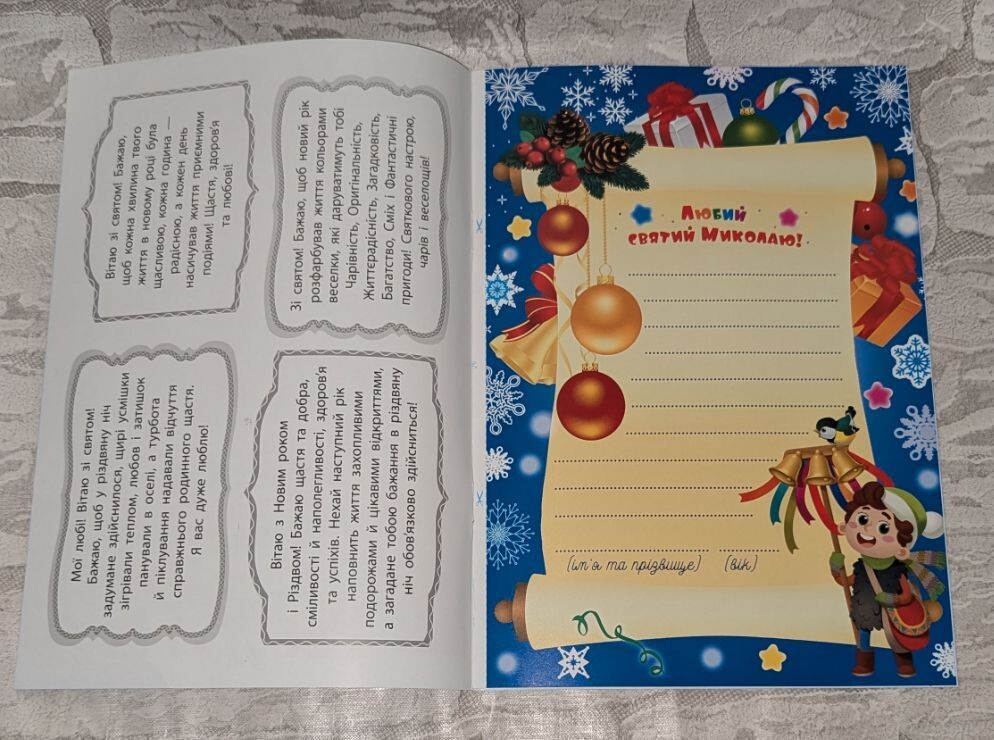 Мої любі! Вітаю зі святом!
Бажаю, щоб у різдвяну ніч
задумане здійснилося, щирі усмішки
зігрівали теплом, любов і затишок
панували в оселі, а турбота
й піклування надавали відчуття
справжнього родинного щастя.
Я вас дуже люблю!
Вітаю зі святом! Бажаю,
щоб кожна хвилина твого
життя в новому році була
щасливою, кожна година —
радісною, а кожен день
насичував життя приємними
подіями! Щастя, здоров'я
та любові!
Вітаю з Новим роком
і Різдвом! Бажаю щастя та добра,
сміливості й наполегливості, здоров'я
та успіхів. Нехай наступний рік
наповнить життя захопливими
подорожами й цікавими відкриттями,
а загадане тобою бажання в різдвяну
ніч обов'язково здійсниться!
Зі святом! Бажаю, щоб новий рік
розфарбував життя кольорами
веселки, які даруватимуть тобі
Чарівність, Оригінальність,
Життєрадісність, Загадковість,
Багатство, Сміх і Фантастичні
пригоди! Святкового настрою,
чарів і веселощів!
Любий
святий Миколаю!
(ім'я та прізвище) (вік)